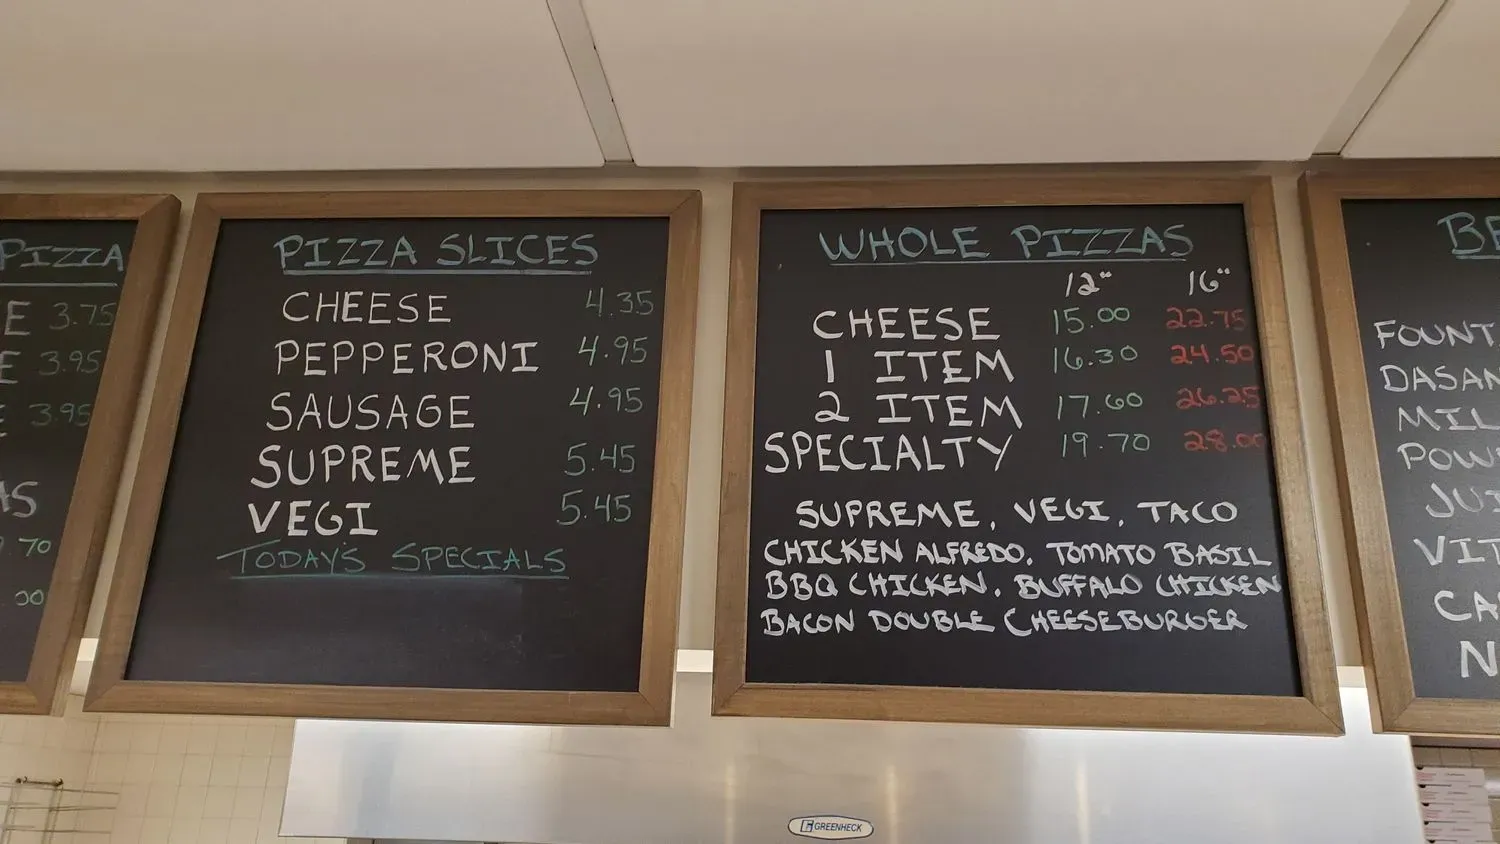 PIZZA
E 3.75
E 3.95
E 3.95
AS
9.70
.00
PIZZA SLICES
CHEESE 4.35
PEPPERONI 4.95
SAUSAGE 4.95
SUPREME 5.45
VEGI 5.45
TODAY'S SPECIALS
WHOLE PIZZAS
12" 16"
CHEESE 15.00 22.75
1 ITEM 16.30 24.50
2 ITEM 17.60 26.25
SPECIALTY 19.70 28.00
SUPREME, VEGI, TACO
CHICKEN ALFREDO, TOMATO BASIL
BBQ CHICKEN, BUFFALO CHICKEN
BACON DOUBLE CHEESEBURGER
BE
FOUNT
DASAN
MIL
POW
JUI
VIT
CA
N
GREENHECK